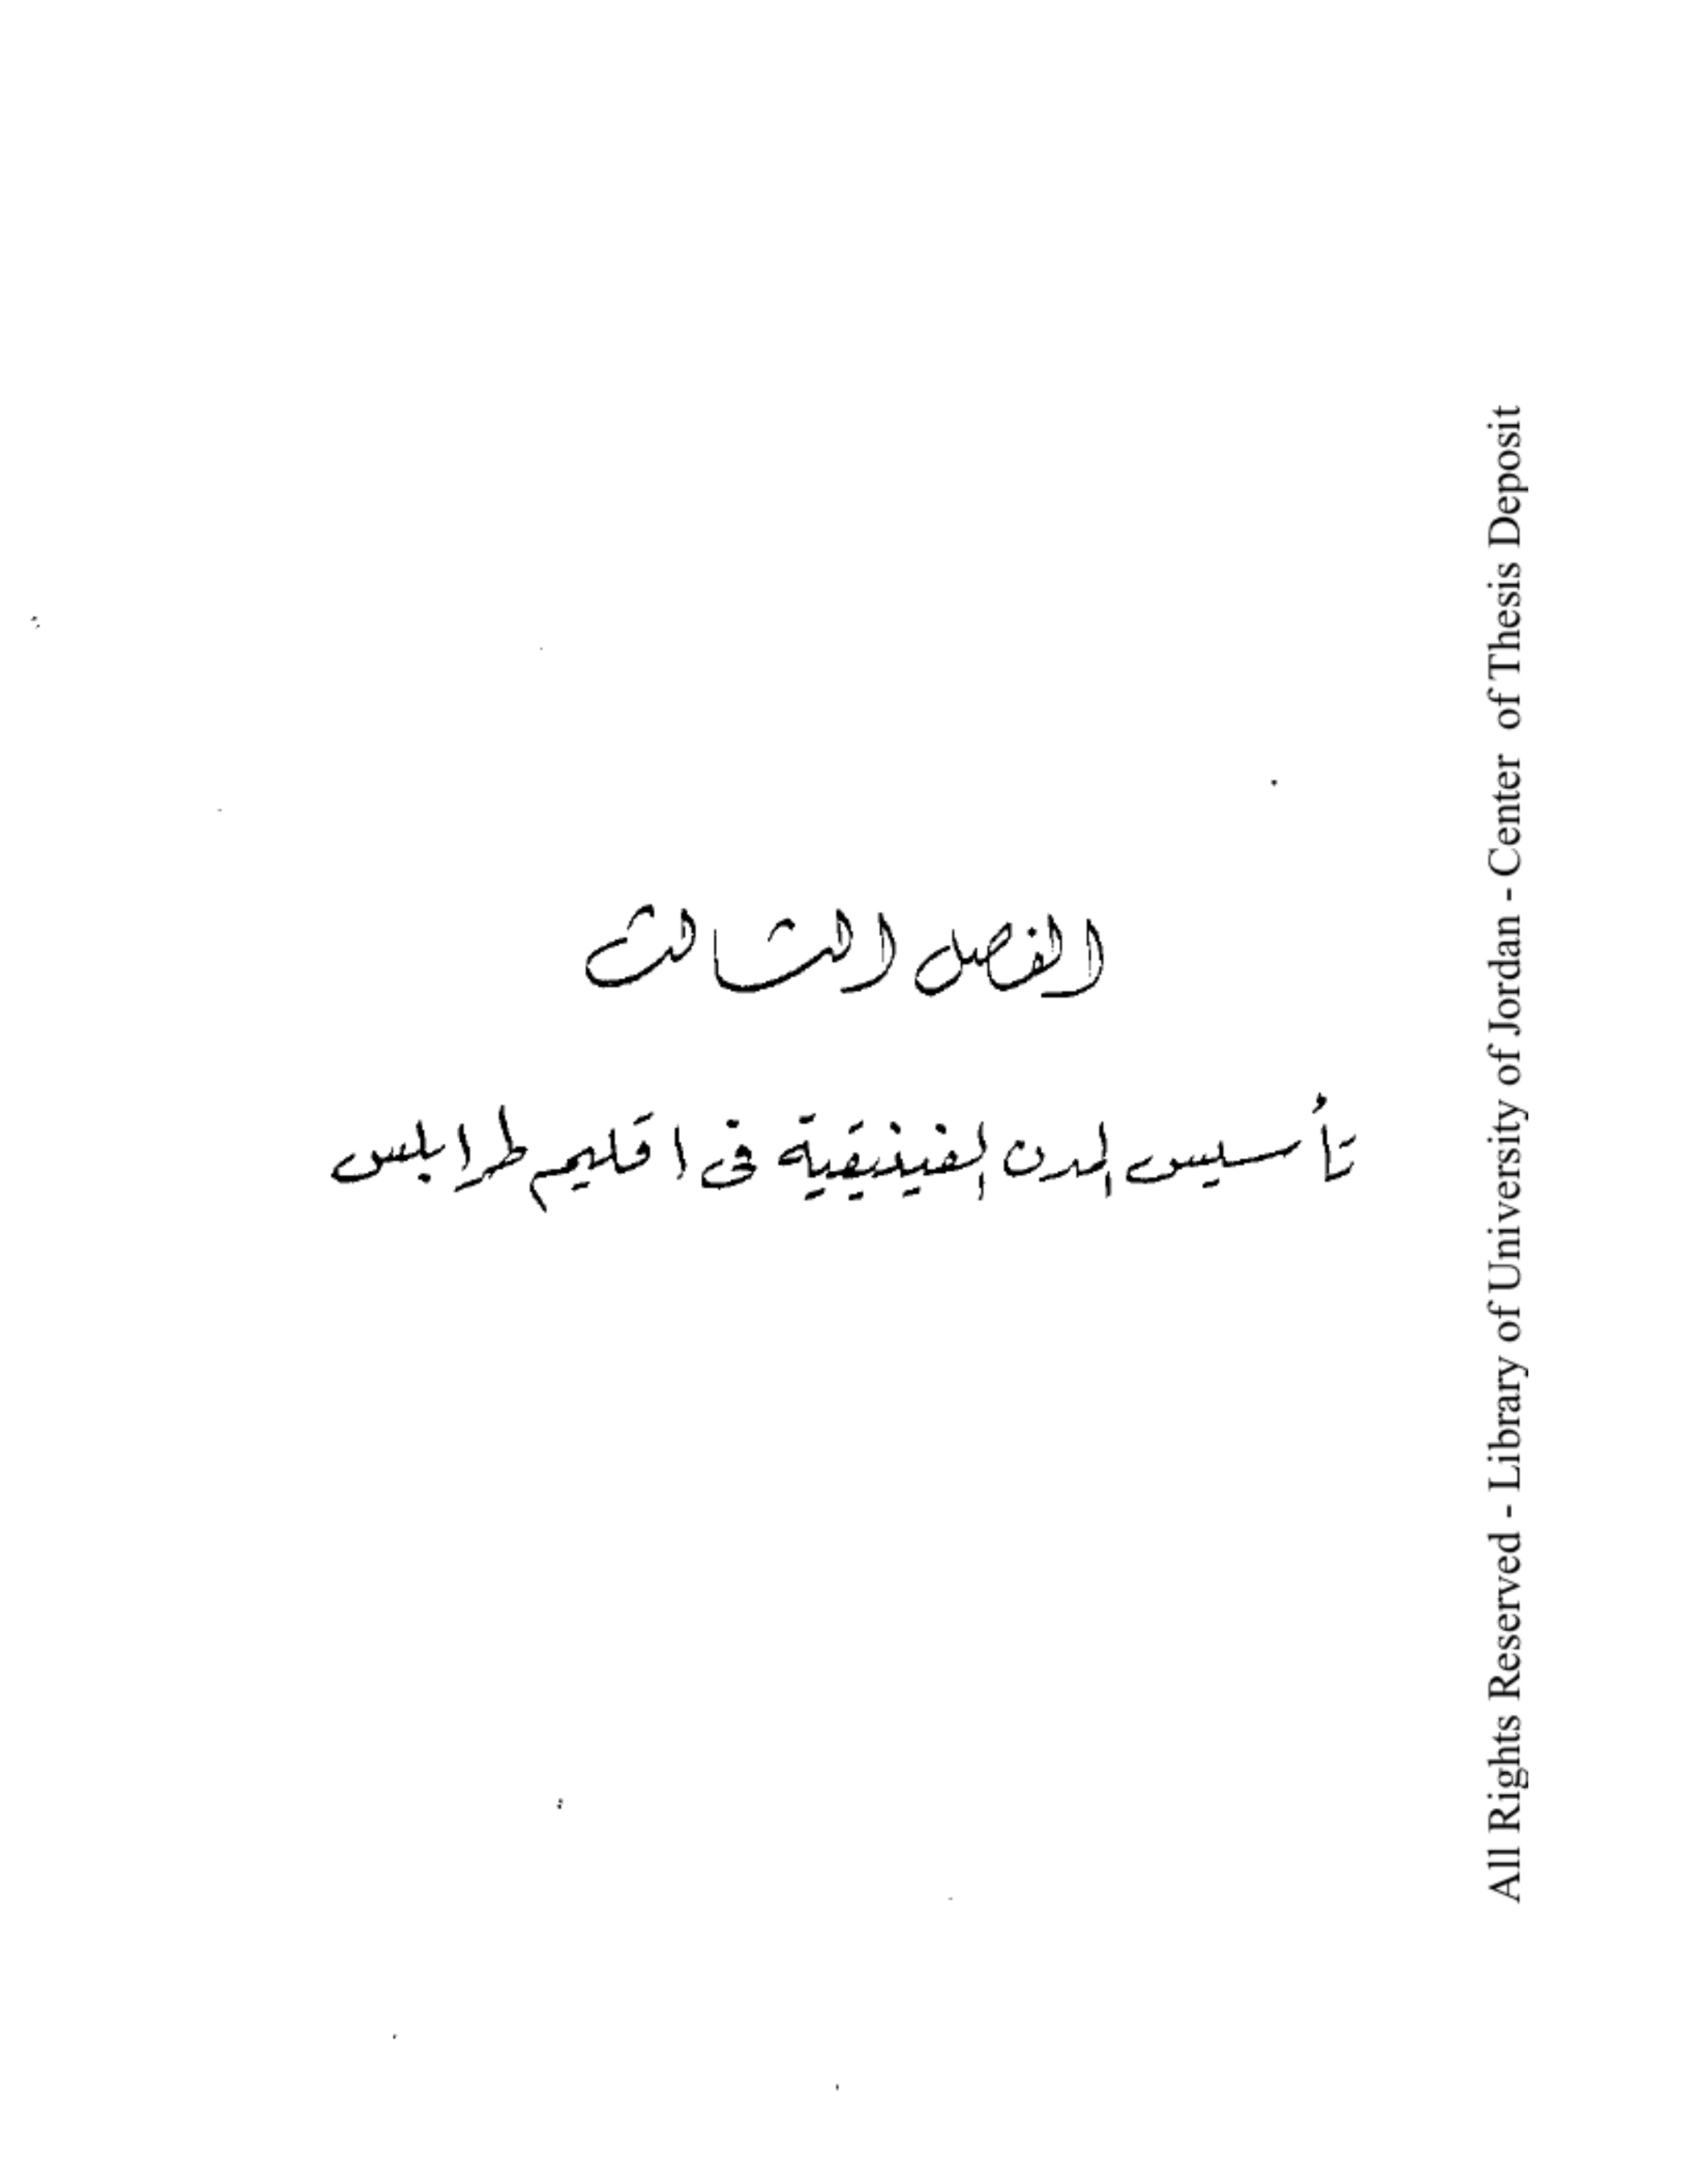 الفصل الثالث
تأسيس المدن الفينيقية فى اقليم طرابلس
All Rights Reserved - Library of University of Jordan - Center of Thesis Deposit